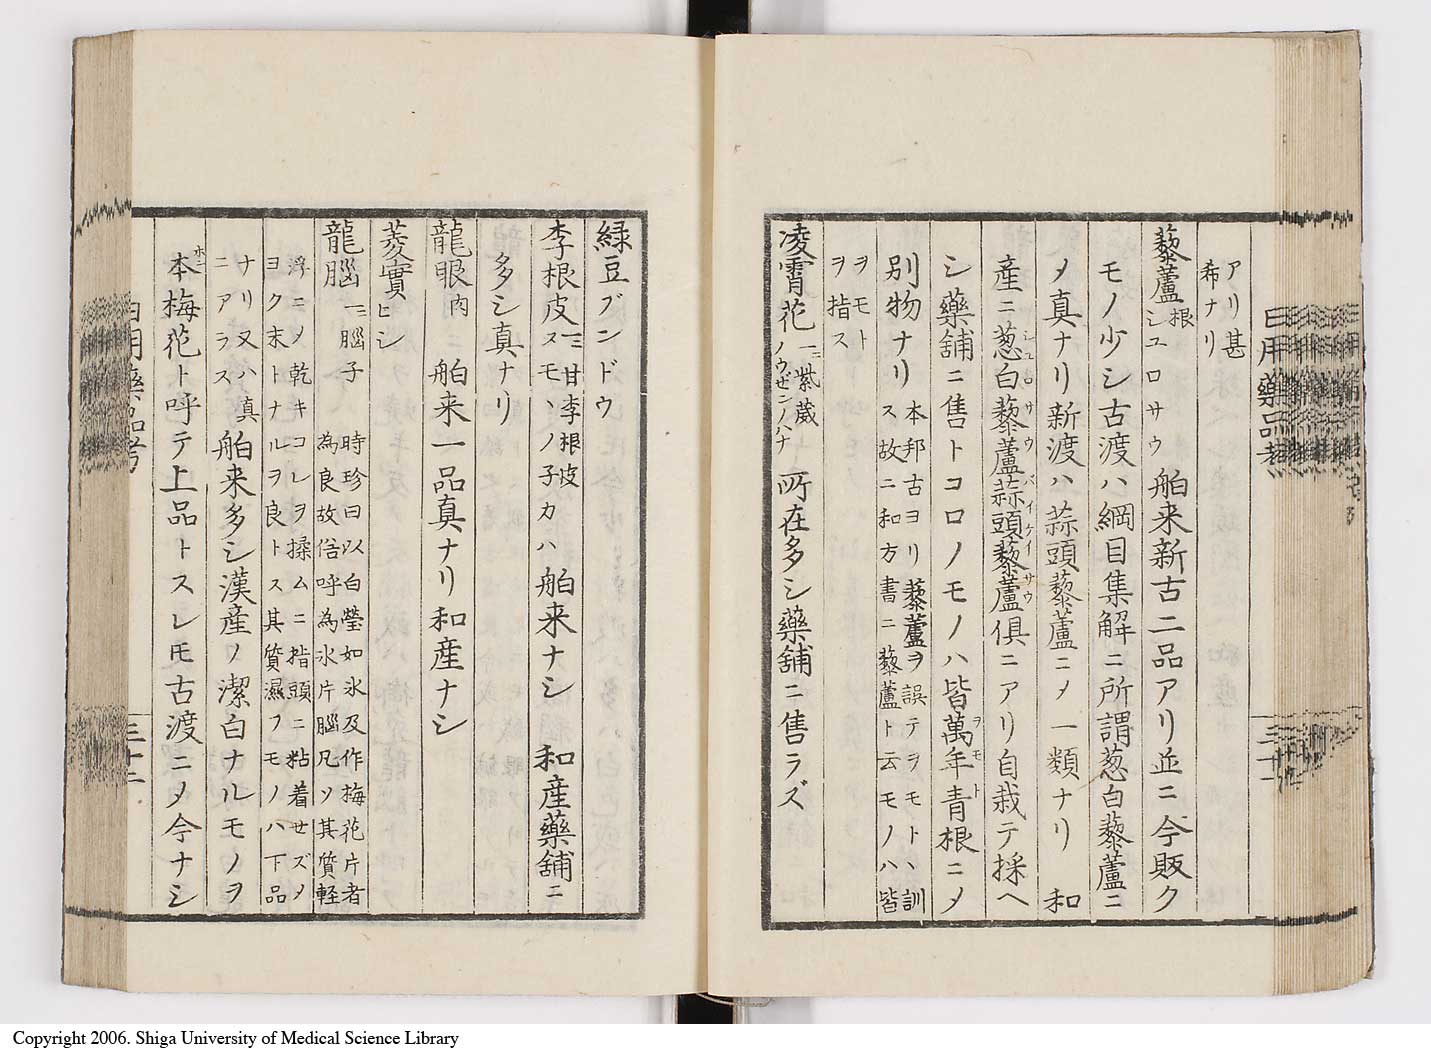 日用藥品考
三十一
アリ甚
希ナリ
藜蘆根シユロサウ 舶来新古二品アリ並ニ今販ク
モノ少シ古渡ハ綱目集解ニ所謂葱白藜蘆ニ
メ真ナリ新渡ハ蒜頭藜蘆ニメ一類ナリ 和
産ニ葱白藜蘆シユロサウ蒜頭藜蘆バイケイサウ俱ニアリ自栽テ採ヘ
シ藥舗ニ售トコロノモノハ皆萬年青ヲモト根ニメ
別物ナリ 本邦古ヨリ藜蘆ヲ誤テヲモトヽ訓
ス故ニ和方書ニ藜蘆ト云モノハ皆
ヲモト
ヲ指ス
凌霄花 一ニ紫葳
ノウゼンノハナ 所在多シ藥舗ニ售ラズ
緑豆ブンドウ
李根皮 一ニ甘李根皮
スモヽノ子カハ 舶来ナシ 和産藥舗ニ
多シ真ナリ
龍眼肉 舶来一品真ナリ和産ナシ
菱實ヒシ
龍腦 一ニ腦子 時珍曰以白瑩如氷及作梅花片者
為良故俗呼為氷片腦凡ソ其質軽
浮ニメ乾キコレヲ揉ムニ指頭ニ粘着セズメ
ヨク末トナルヲ良トス其質濕フモノハ下品
ナリ又ハ真
ニアラス 舶来多シ漢産ノ潔白ナルモノヲ
本梅花ト呼テ上品トスレモ古渡ニメ今ナシ
日用藥品考
三十二
Copyright 2006. Shiga University of Medical Science Library